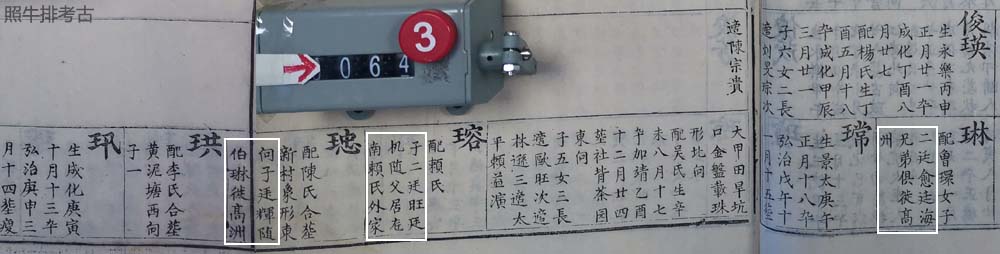 照牛排考古
3
064
俊瑛
生永樂丙申
正月廿一卒
成化丁酉八
月廿七
配楊氏生丁
酉五月十八
卒成化甲辰
三月廿一
子六女二長
適劉旻琮次
琳
配曹環女子
二廷愈廷海
兄弟俱徙高
州
瑺
生景太庚午
正月十八卒
弘治戊午十
一月十五葬
適陳宗貴
大甲田旱坑
口金盤載珠
形北向
配吴氏生辛
未八月十七
卒如靖乙
十二月廿四
葬社背茶園
東向
子五女三長
適歐旺次適
林遜三適太
平賴益演
瑢
配賴氏
子二廷旺廷
机随父居在
南賴氏外家
配陳氏合葬
新村象形東
向子廷輝随
伯琳徙高洲
珙
配李氏合葬
黄泥塘西向
子一
生成化庚寅
十月十三卒
弘治庚申三
月十四葬瘦